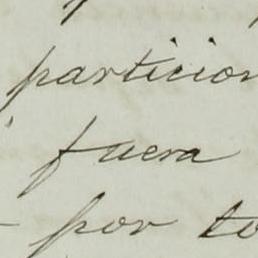 particion
fuera
- por to